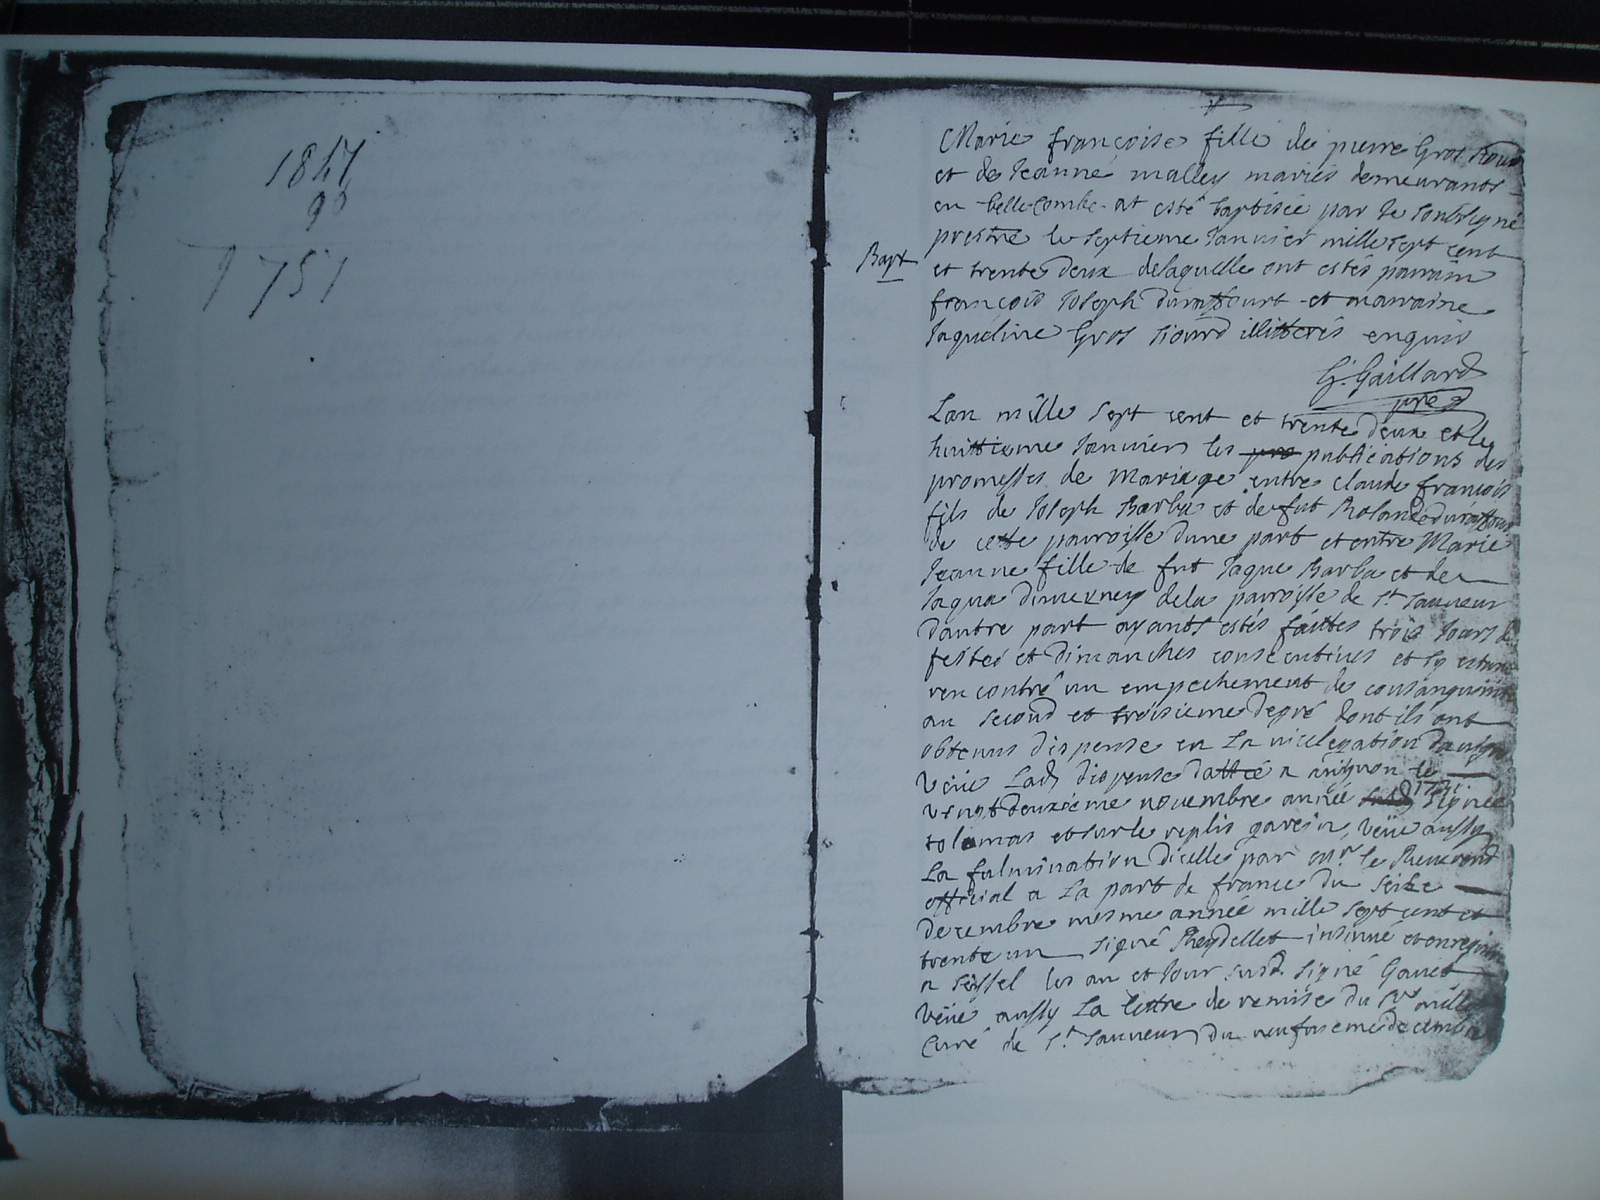 1847
96
1751
Bapt
Marie françoise fille de pierre Gros
et de Jeanne malley mariés demeurants
en belle-combe at esté baptisée par Je soubsigné
prestre le septieme Janvier mille sept cent
et trente deux de laquelle ont estés parrain
françois Joseph duraffourt et marraine
Jaqueline Gros illitterés enquis
G. Gaillard
pre
Lan mille sept cent et trente deux et le
huittieme Janvier les publications des
promesses de Mariage entre claude françois
fils de Joseph Barba et de fut Rolande duraffour
de cette parroisse dune part et entre Marie
Jeanne fille de fut Jaque Barba et de
Jaqua dela parroisse de st Sauveur
dautre part ayants estés faittes trois Jours de
festes et dimanches consecutives et sy estant
rencontré un empechement de consanguinité
au second et troisieme degré dont ils ont
obtenus dispense en La vicelegation
Veüe Lad dispense dattée a avignon le
vingt deuxieme novembre année 1731 signée
tolomas et sur le replis gavein, Veüe aussy
La fulmination dicelle par mr le Reverend
official a La part de france du seize
decembre mesme année mille sept cent et
trente un signé Reydellet insinué et enregistré
a seissel les an et Jour susd. signé Gavet
Veüe aussy La lettre de remise du sr mille
Curé de st Sauveur du decembre